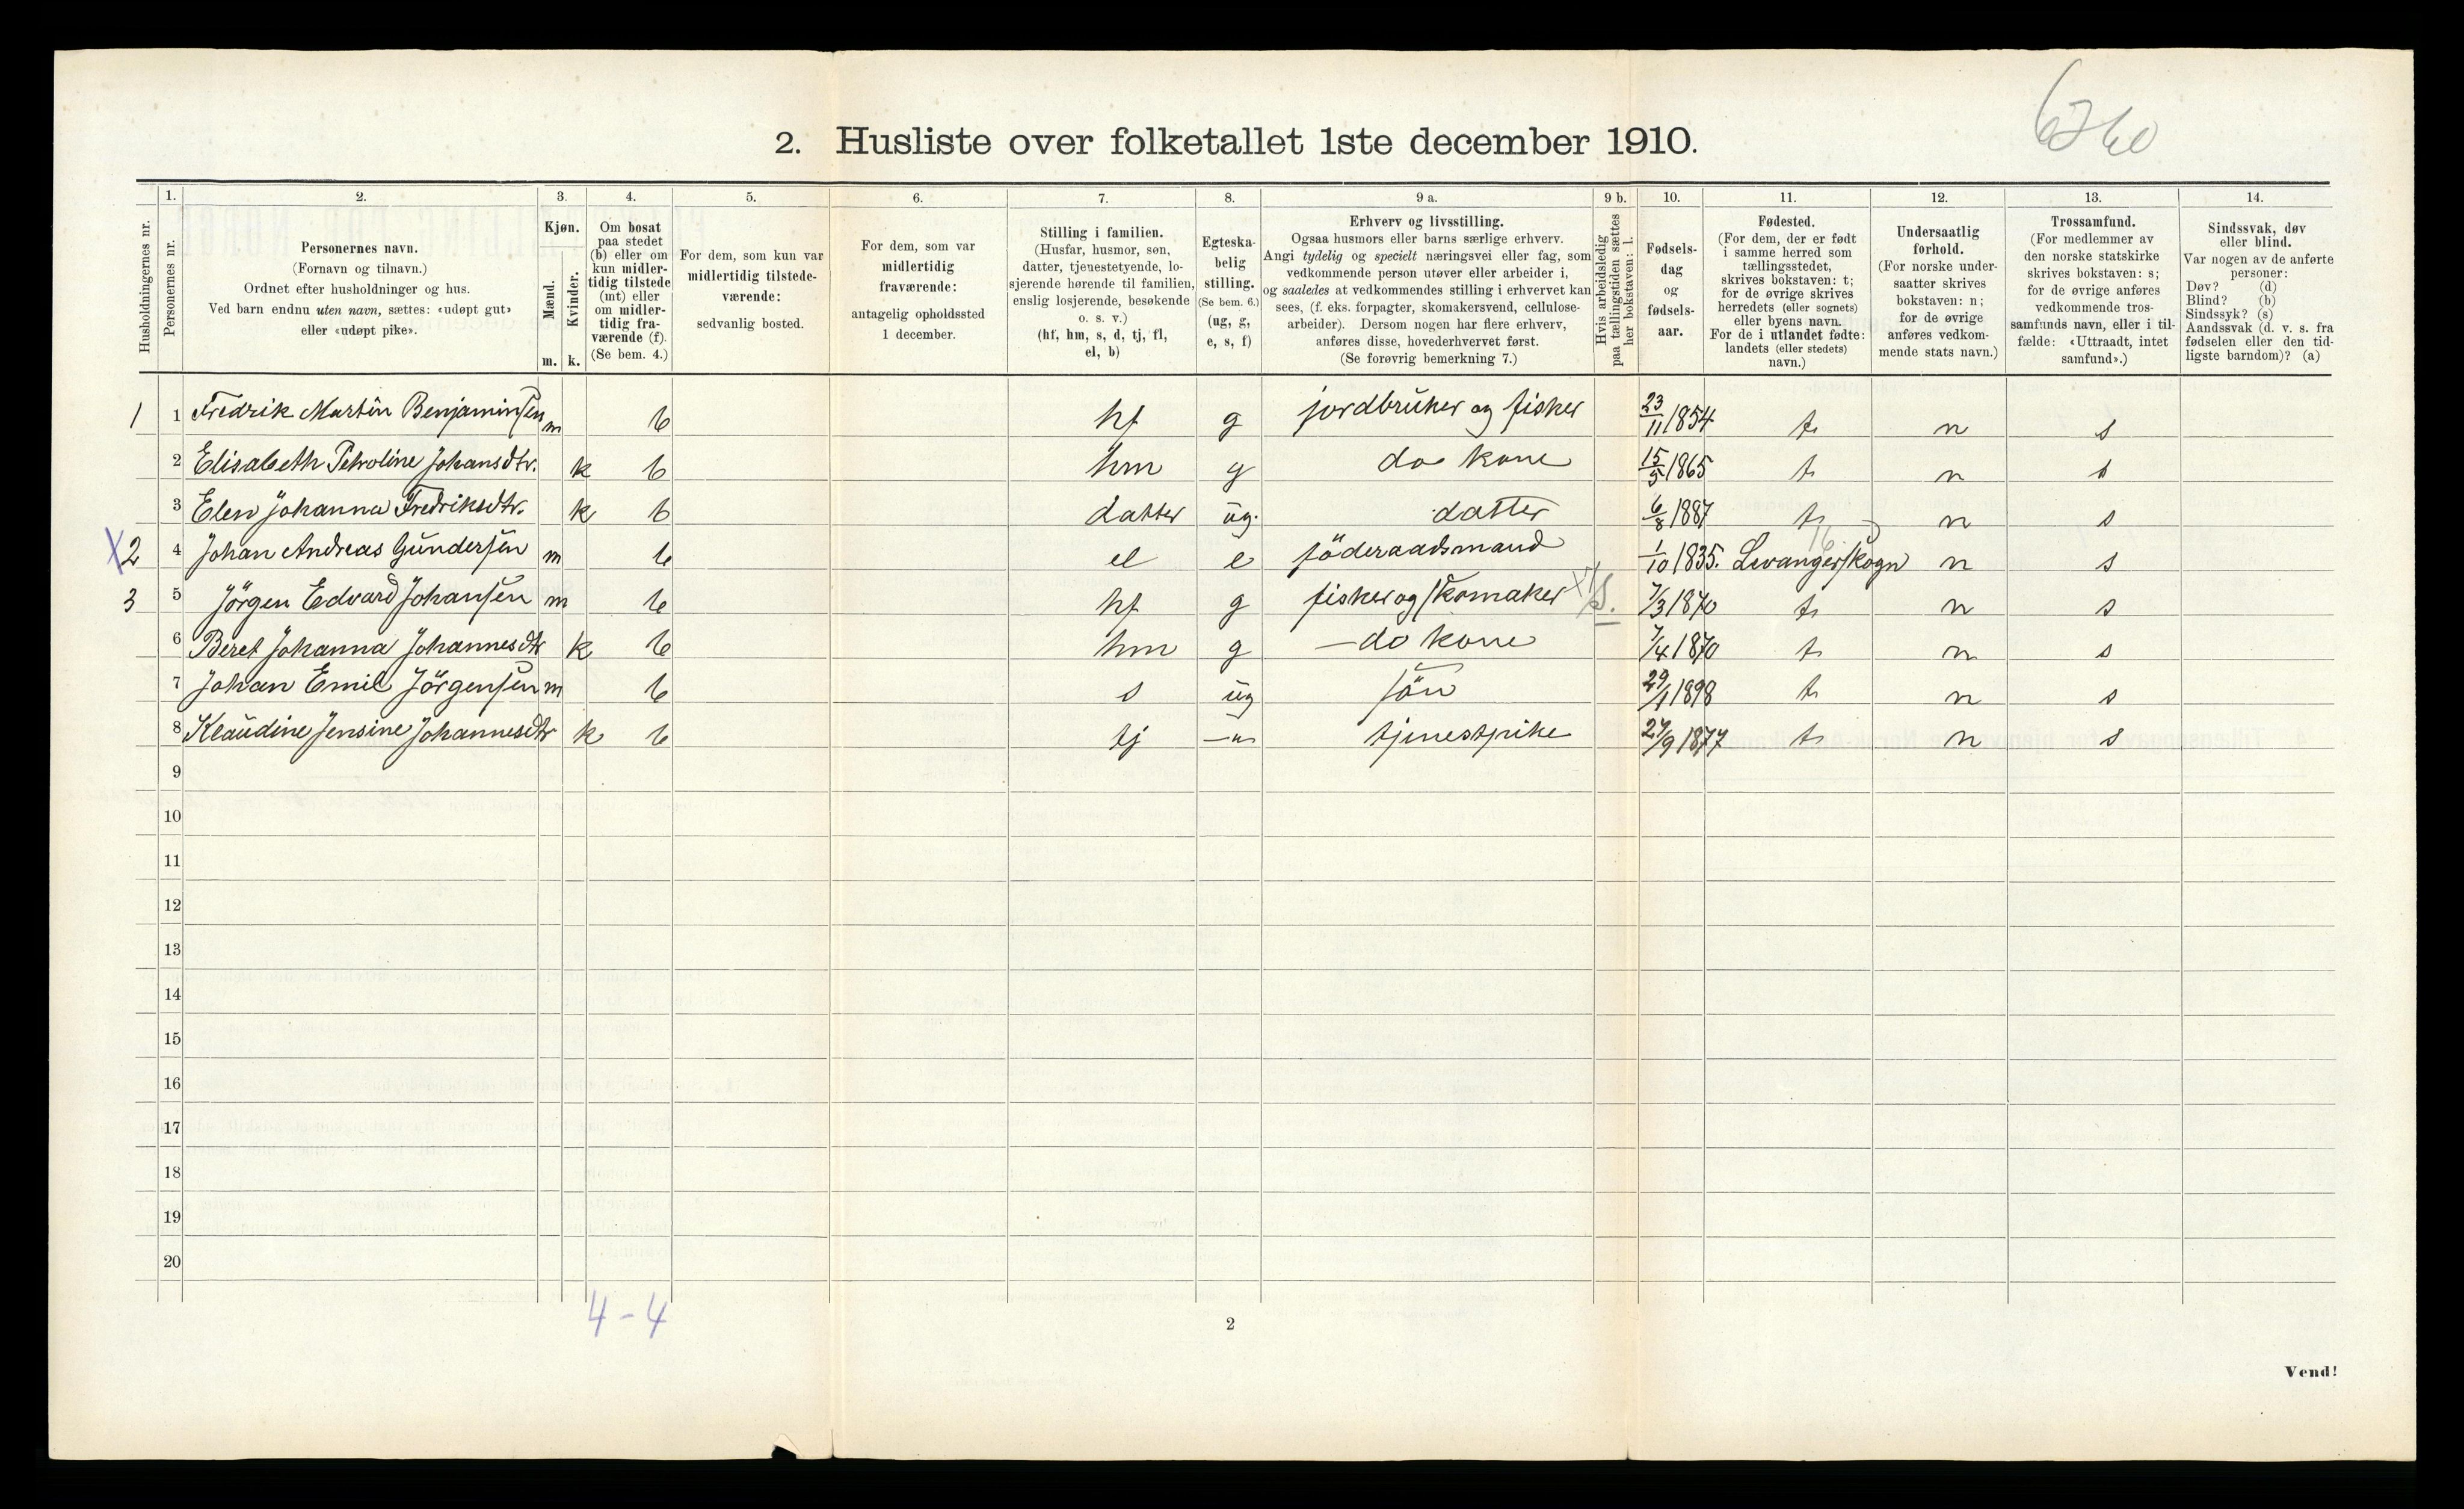 6260
2. Husliste over folketallet 1ste december 1910.
Husholdningernes nr.
1. Personernes nr.
2. Personernes navn. (Fornavn og tilnavn.) Ordnet efter husholdninger og hus. Ved barn endnu uten navn, sættes: «udøpt gut» eller «udøpt pike».
3. Kjøn. Mænd. m. Kvinder. k.
4. Om bosat paa stedet (b) eller om kun midlertidig tilstede (mt) eller om midlertidig fraværende (f). (Se bem. 4.)
5. For dem, som kun var midlertidig tilstedeværende: sedvanlig bosted.
6. For dem, som var midlertidig fraværende: antagelig opholdssted 1 december.
7. Stilling i familien. (Husfar, husmor, søn, datter, tjenestetyende, losjerende hørende til familien, enslig losjerende, besøkende o. s. v.) (hf, hm, s, d, tj, fl, el, b)
8. Egteskabelig stilling. (Se bem. 6.) (ug, g, e, s, f)
9 a. Erhverv og livsstilling. Ogsaa husmors eller barns særlige erhverv. Angi tydelig og specielt næringsvei eller fag, som vedkommende person utøver eller arbeider i, og saaledes at vedkommendes stilling i erhvervet kan sees, (f. eks. forpagter, skomakersvend, cellulosearbeider). Dersom nogen har flere erhverv, anføres disse, hovederhvervet først. (Se forøvrig bemerkning 7.)
9 b. Hvis arbeidsledig paa tællingstiden sættes her bokstaven: l.
10. Fødselsdag og fødselsaar.
11. Fødested. (For dem, der er født i samme herred som tællingsstedet, skrives bokstaven: t; for de øvrige skrives herredets (eller sognets) eller byens navn. For de i utlandet fødte: landets (eller stedets) navn.)
12. Undersaatlig forhold. (For norske undersaatter skrives bokstaven: n; for de øvrige anføres vedkommende stats navn.)
13. Trossamfund. (For medlemmer av den norske statskirke skrives bokstaven: s; for de øvrige anføres vedkommende trossamfunds navn, eller i tilfælde: «Uttraadt, intet samfund».)
14. Sindssvak, døv eller blind. Var nogen av de anførte personer: Døv? (d) Blind? (b) Sindssyk? (s) Aandssvak (d. v. s. fra fødselen eller den tidligste barndom)? (a)
1 1 Fredrik Martin Benjaminsen m b hf g jordbruker og fisker 23/11 1854 t n s
2 Elisabeth Petroline Johansdtr. k b hm g do kone 15/5 1865 t n s
3 Elen Johanna Fredriksdtr. k b datter ug. datter 6/8 1887 t n s
X2 4 Johan Andreas Gundersen m b el e föderaadsmand 1/10 1835. Levangerskogn 16 n s
3 5 Jörgen Edvard Johansen m b hf g fisker og skomaker 7/3 1870 t n s
6 Beret Johanna Johannesdtr k b hm g — do kone 7/4 1870 t n s
7 Johan Emil Jörgensen m b s ug sön 29/1 1898 t n s
8 Klaudine Jensine Johannesdtr k b tj —"— tjenestpike 24/9 1877 t n s
9
10
11
12
13
14
15
16
17
18
19
20
4-4
2
Vend!